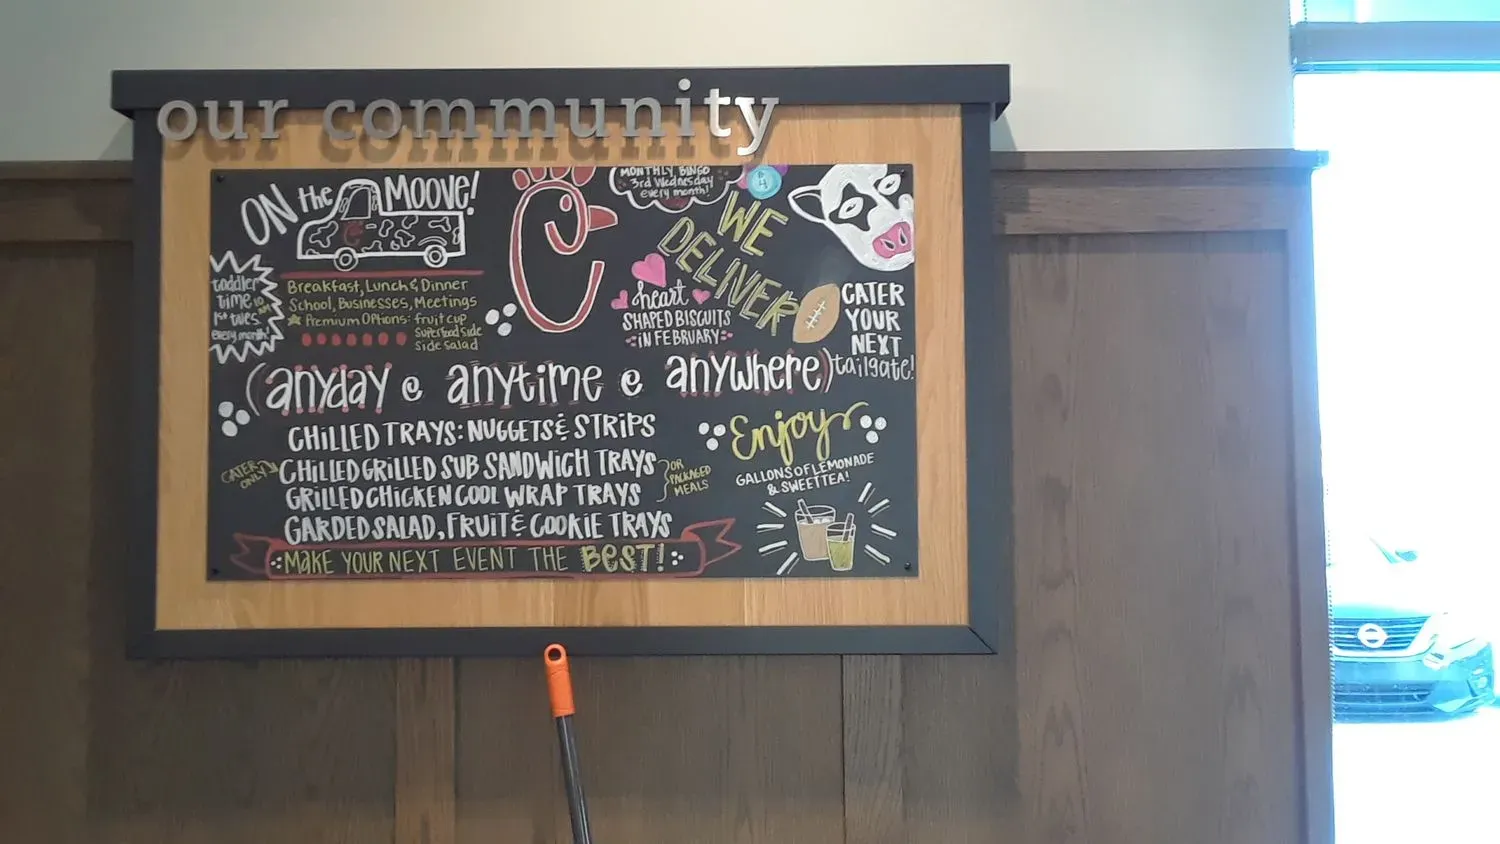 our community
ON the MOOVE!
MONTHLY BINGO
3rd Wednesday
every month!
WE
DELIVER
toddler
time 10 AM
1st tues.
every month!
Breakfast, Lunch & Dinner
School, Businesses, Meetings
Premium Options: fruit cup
Superfood side
side salad
heart
SHAPED BISCUITS
IN FEBRUARY
CATER
YOUR
NEXT
tailgate!
(anyday @ anytime @ anywhere)
CHILLED TRAYS: NUGGETS & STRIPS
CHILLED GRILLED SUB SANDWICH TRAYS
GRILLED CHICKEN COOL WRAP TRAYS
GARDED SALAD, FRUIT & COOKIE TRAYS
CATER
ONLY
OR
PACKAGED
MEALS
MAKE YOUR NEXT EVENT THE BEST!
Enjoy
GALLONS OF LEMONADE
& SWEET TEA!